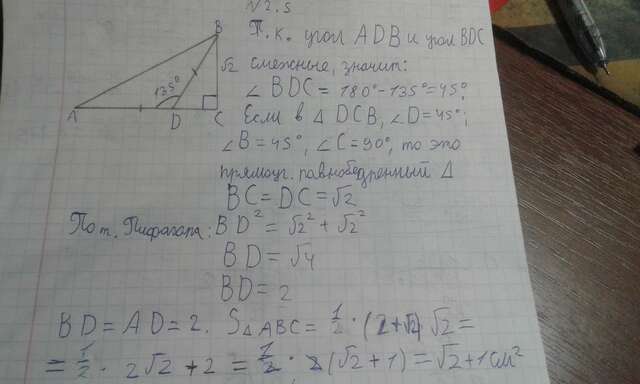 N2.5
A
D
135°
B
√2
C
Т.к. угол ADB и угол BDC
смежные, значит:
∠ BDC = 180°-135°=45°
Если в Δ DCB, ∠D=45°,
∠B=45°, ∠C=90°, то это
прямоуг. равнобедренный Δ
BC = DC = √2
По т. Пифагора. BD² = √2² + √2²
BD = √4
BD = 2
BD = AD = 2. SΔABC = 1/2 · (2+√2)√2 =
= 1/2 · 2√2 + 2 = 1/2 · 2(√2 + 1) = √2 + 1 см²